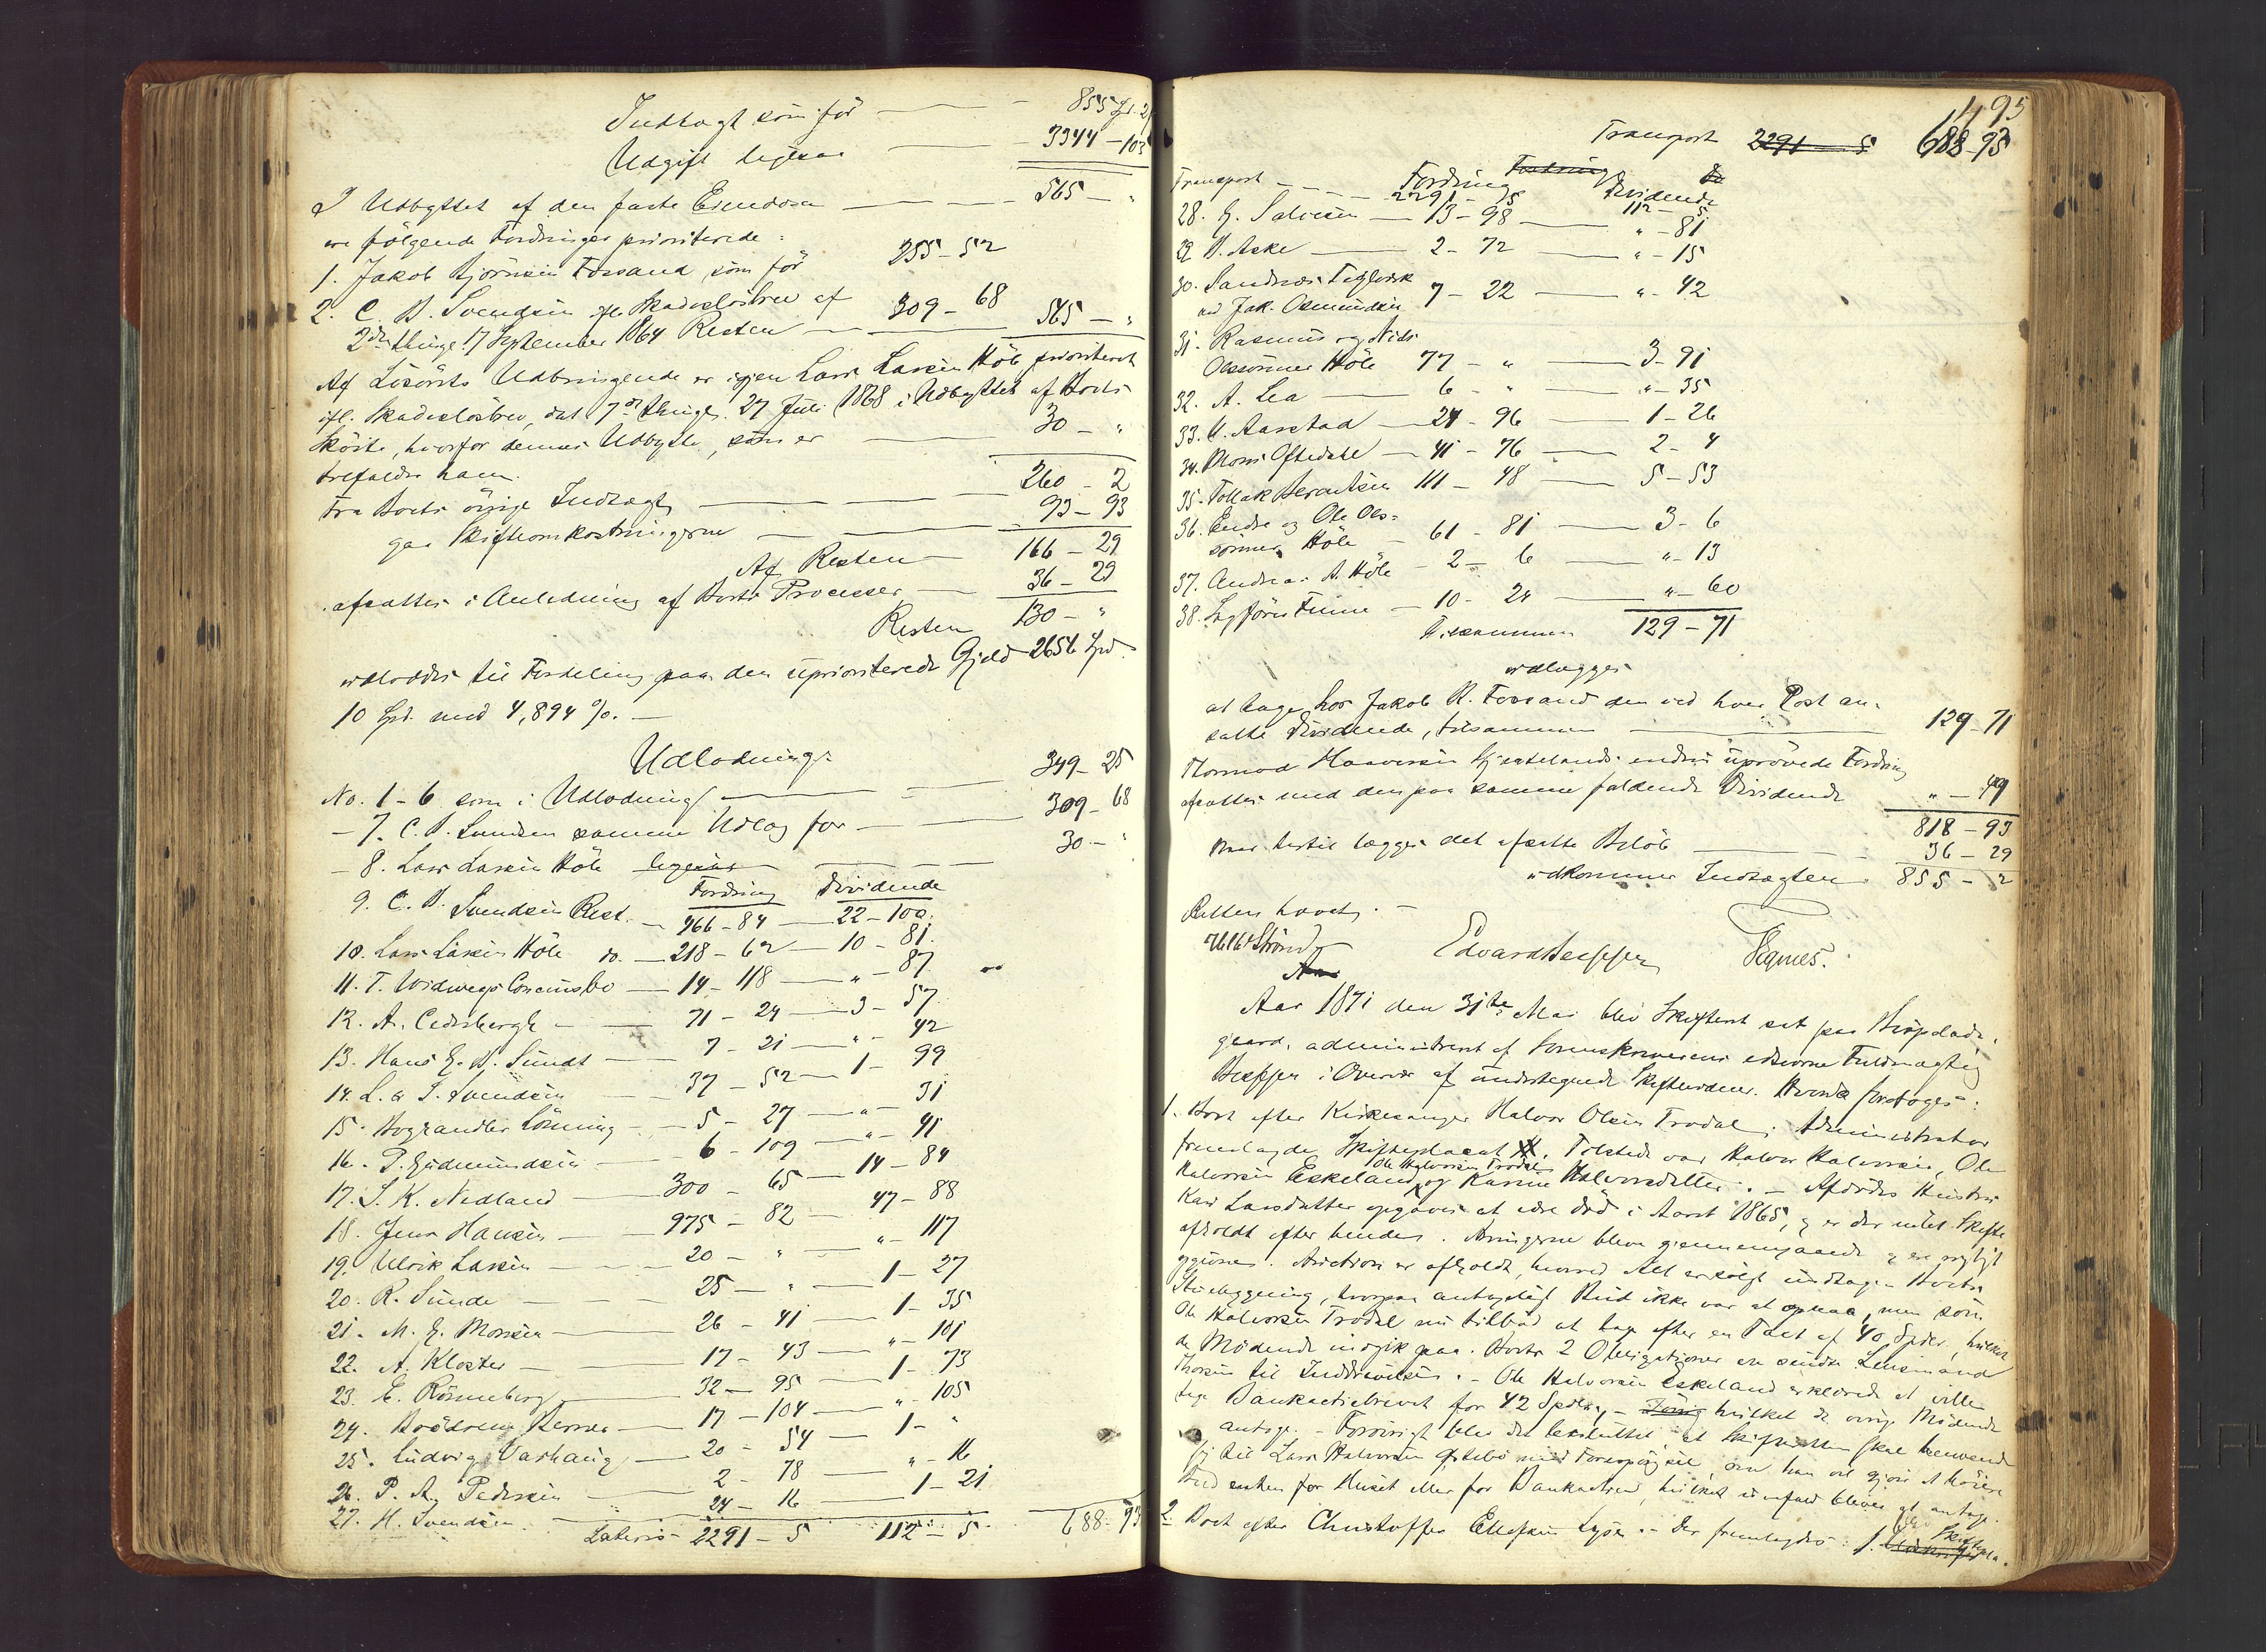 Indtægt som før — 855 Spd. 2
Udgift ligesaa — 3344 - 103
I Udbyttet af den faste Eiendom — 565 - "
ere følgende Fordringer prioriterede:
1. Jakob Bjørnsen Fossand, som før 255 - 52
2. C. B. Svendsen ifl. Skadesløsbrev af
2den thingl. 17 September 1864 Resten 309 - 68 565 - "
Af Løsørets Udbringende er igjen Lars Larsen Høle prioriteret
ifl. Skadesløsbrev, dat 7de thingl. 27 Juli 1868 i Udbyttet af Boets
Heste, hvorfor dennes Udbytte, som er — 30 - "
tilfalder ham.
Fra Boets øvrige Indtægt — 260 - 2
gaa Skifteomkostningerne — 93 - 93
Af Resten 166 - 29
afsættes i Anledning af Boets Processer — 36 - 29
Resten 130 - "
udloddes til Fordeling paa den uprioriterede Gjæld 2656 Spd.
10 Spd. med 4,894 %. —
Udlodning:
No. 1-6 som i Udlodning — 349 - 25
- 7. C. B. Svendsen samme Udlæg for — 309 - 68
- 8. Lars Larsen Høle ligesaa — 30 - "
Fordring Dividende
9. C. B. Svendsen Rest. — 466 - 84 — 22 - 100.
10. Lars Larsen Høle do. — 218 - 62 — 10 - 81.
11. T. Widwegs Concursbo — 14 - 118 — " - 87.
12. A. Cedersbergh — 71 - 24 — 3 - 57.
13. Hans G. B. Sundt — 7 - 21 — " - 42
14. L. & S. Svendsen — 37 - 52 — 1 - 99
15. Boghandler Lönning — 5 - 27 — " - 31
16. P. Gudmundsen — 6 - 109 — " - 41
17. S. K. Nedland — 300 - 65 — 14 - 84
18. Jens Hansen — 975 - 82 — 47 - 88
19. Ulrik Larsen — 20 - " — " - 117
20. R. Sunde — 25 - " — 1 - 27
21. M. G. Monsen — 26 - 41 — 1 - 35
22. A. Kloster — 17 - 43 — " - 101
23. E. Rönneberg — 32 - 95 — 1 - 73
24. Brödrene Berner — 17 - 104 — " - 105
25. Ludvig Varhaug — 20 - 54 — 1 - "
26. P. A. Pedersen — 2 - 78 — " - 16
27. H. Svendsen — 24 - 16 — 1 - 21
Lateris 2291 - 5 112 - 5. 688 - 93
495
Transport 2291 5 688 - 93
Fordring
Transport — Fordring 2291 - 5 Dividende 112 - 5.
28. G. Salvesen — 13 - 98 — " - 81
29. B. Aske — 2 - 72 — " - 15
30. Sandnæs Teglværk
ved Jak. Osmundsen 7 - 22 — " - 42
31. Rasmus og Nils
Olssønner Høle 77 - " — 3 - 91
32. A. Lea — 6 - " — " - 35
33. U. Aarstad — 24 - 96 — 1 - 26
34. Mons Oftedahl — 41 - 76 — 2 - 4
35. Tollak Berentsen 111 - 48 — 5 - 53
36. Endre og Ole Ols-
sønner Høle — 61 - 81 — 3 - 6
37. Andreas A. Høle — 2 - 6 — " - 13
38. Sagfører Finne — 10 - 24 — " - 60
Tilsammen 129 - 71
udlægges
at tage hos Jakob B. Fossand den ved hver Post an-
satte Dividende, tilsammen — 129 - 71
Tormod Haaversen Hjertelands endnu uprøvede Fordring
afsættes med den paa samme faldende Dividende " - 49
818 - 93
Naar hertil lægges det afsatte Beløb — 36 - 29
udkommer Indtægten 855 - 2
Retten hævet. —
Edvard Beffer Segnes.
Aar 1871 den 31te Mai blev Skifteret sat paa Bispelads-
gaard, administreret af Sorenskriverens edsvorne Fuldmægtig
Beffer i Overvær af undertegnede Skiftevidner. Hvorda foretoges:
1. Boet efter Kirkesanger Halvor Olsen Trodal. Administrator
fremlagde Skifteplacat. Tilstede var Halvor Halvorsen, Ole
Ole Halvorsen Trodal
Halvorsen Eskeland og Karine Halvorsdatter. — Afdødes Hustru
Kari Larsdatter opgaves at være død i Aaret 1865, og er der intet Skifte
afholdt efter hende. Arvingerne bleve gjennemgaaede og ere rigtigt
opgivne. Auction er afholdt, hvorved Alt er solgt undtagen Boets
Stuebygning, hvorpaa antageligt Bud ikke var at opnaa, men som
Ole Halvorsen Trodal nu tilbød at tage efter en Taxt af 40 Spdr., hvilket
de Mødende indgik paa. Boets 2 Obligationer ere sendte Lensmand
Thorsen til Inddrivelse. — Ole Halvorsen Eskeland erklærede at ville
tage Bankactiebrevet for 42 Spdlr, — hvilket de øvrige Mødende
antog. — Forøvrigt blev det besluttet, at Skifteretten skal henvende
sig til Lars Halvorsen Østebø med Forespørgsel, om han vil gjøre et høiere
Bud enten for Huset eller for Bankactien, hvilket i saafald bliver at antage.
2. Boet efter Christoffer Ellefsen Lysø. — Der fremlagdes: 1. Skiftepla-